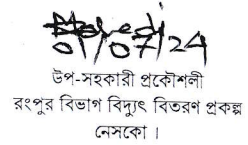 01/07/24
উপ-সহকারী প্রকৌশলী
রংপুর বিভাগ বিদ্যুৎ বিতরণ প্রকল্প
নেসকো ।